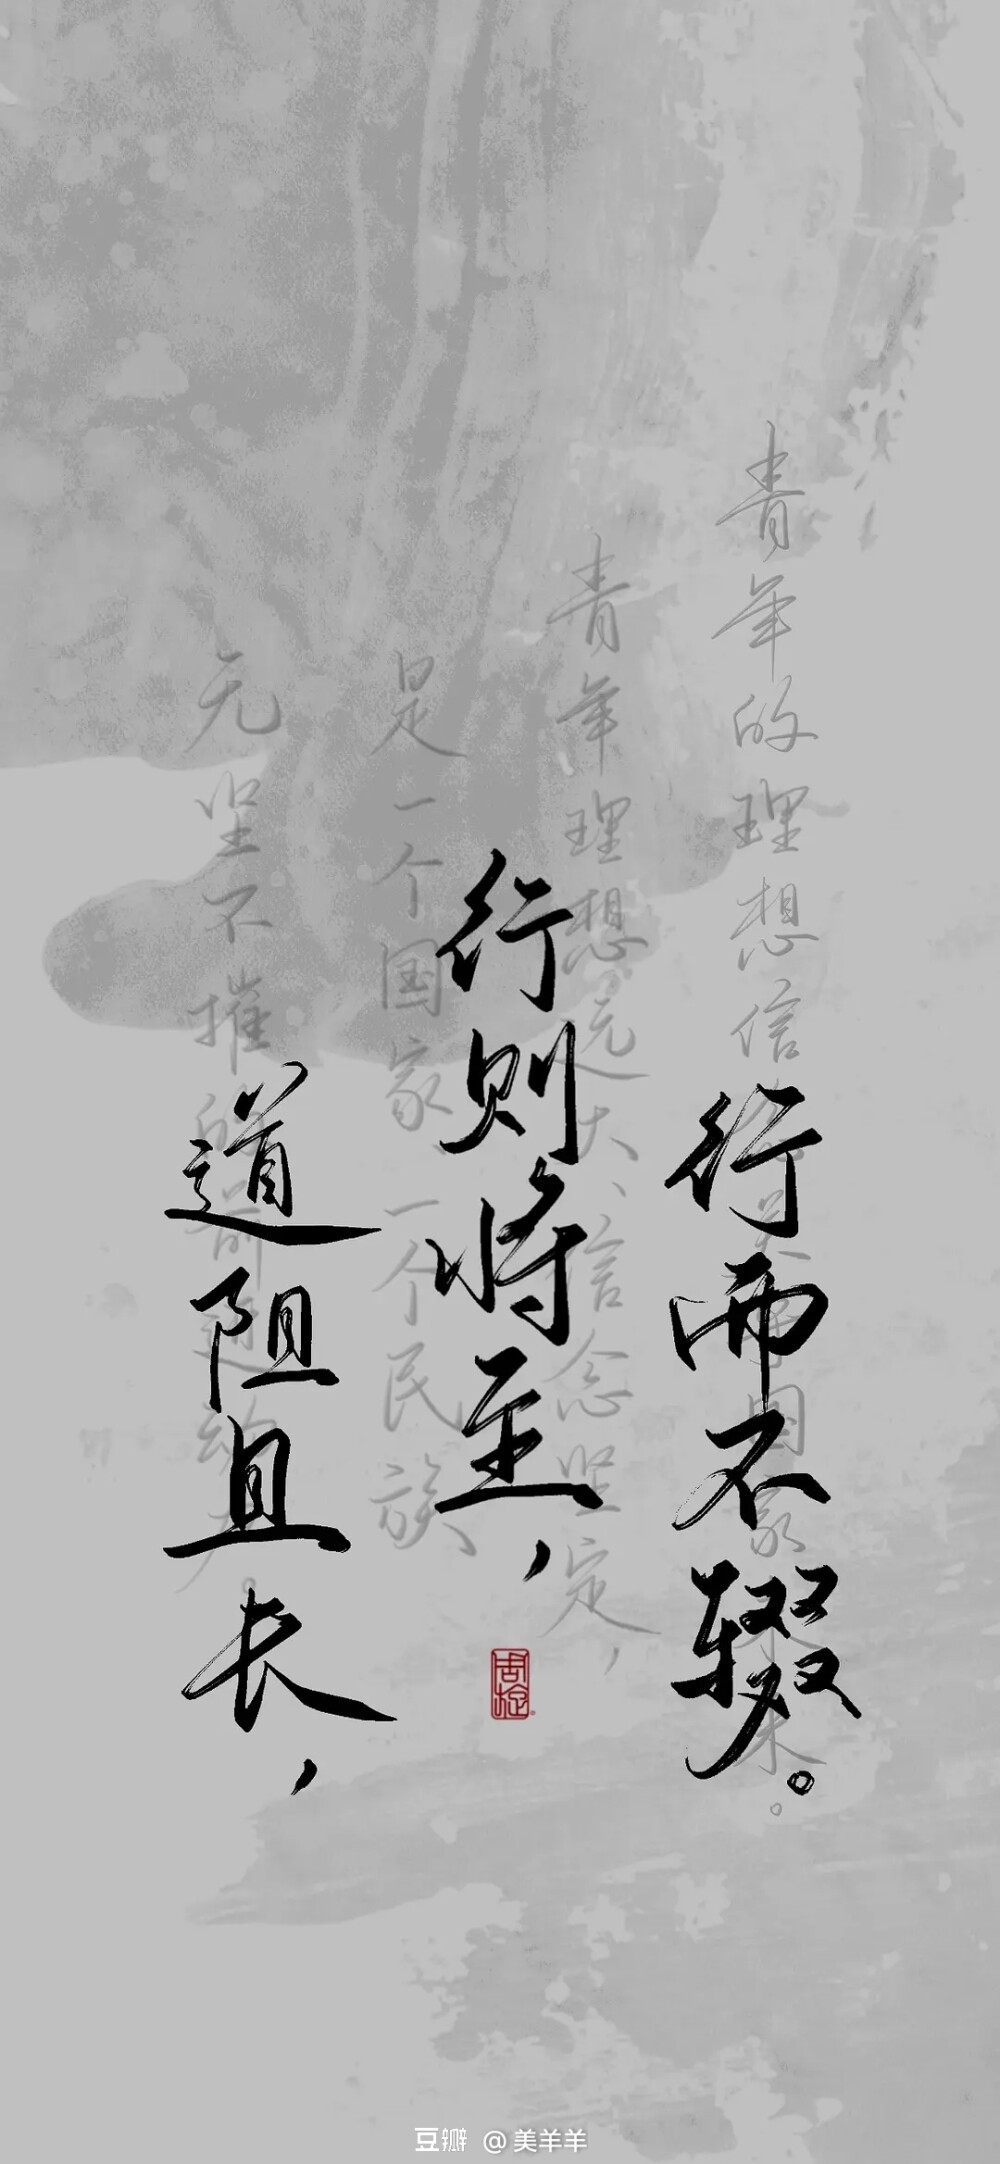 道阻且长，
行则将至，
行而不辍。
青年的理想信念关乎国家未来。
青年理想远大、信念坚定，
是一个国家、一个民族
无坚不摧的前进动力。
豆瓣 @美羊羊